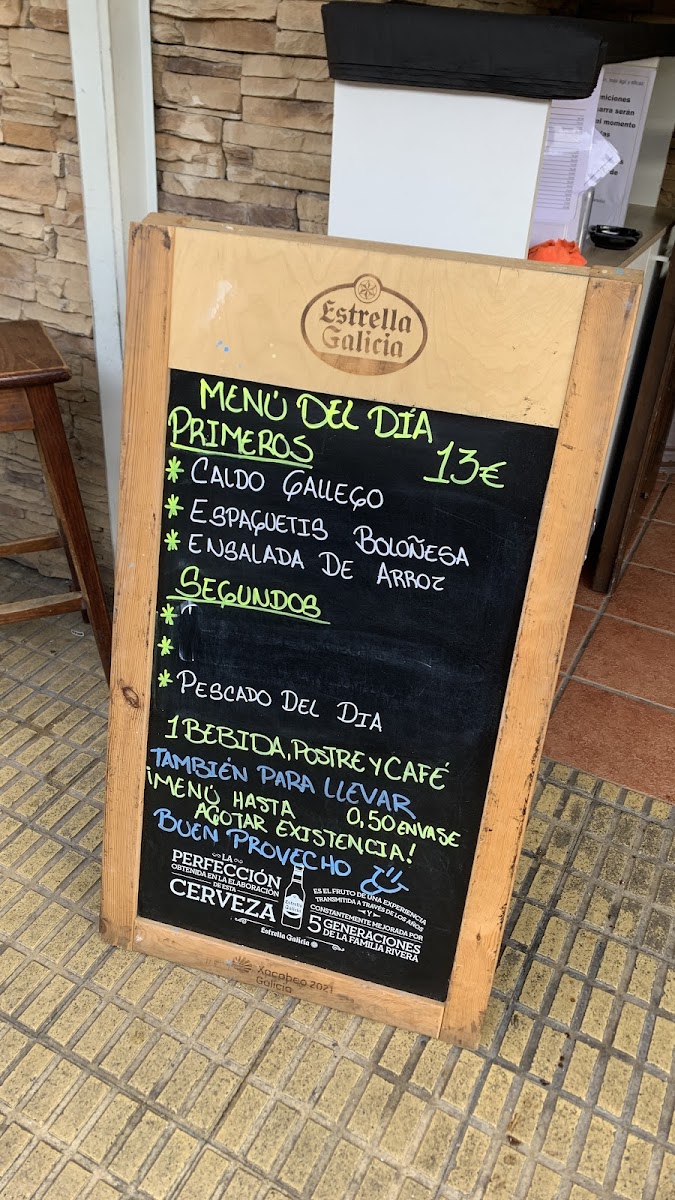 más ágil y eficaz
miciones
arra serán
l momento
las
de
Estrella
Galicia
MENÚ DEL DÍA
PRIMEROS
13€
* CALDO GALLEGO
* ESPAGUETIS BOLOÑESA
* ENSALADA DE ARROZ
SEGUNDOS
*
*
* PESCADO DEL DIA
1 BEBIDA, POSTRE Y CAFÉ
TAMBIÉN PARA LLEVAR
0,50 ENVASE
¡MENÚ HASTA
AGOTAR EXISTENCIA!
BUEN PROVECHO
LA
PERFECCIÓN
OBTENIDA EN LA ELABORACIÓN
DE ESTA
CERVEZA
Estrella Galicia
ES EL FRUTO DE UNA EXPERIENCIA
TRANSMITIDA A TRAVÉS DE LOS AÑOS
Y
CONSTANTEMENTE MEJORADA POR
5 GENERACIONES
DE LA FAMILIA RIVERA
Estrella Galicia
Xacobeo 2021
Galicia